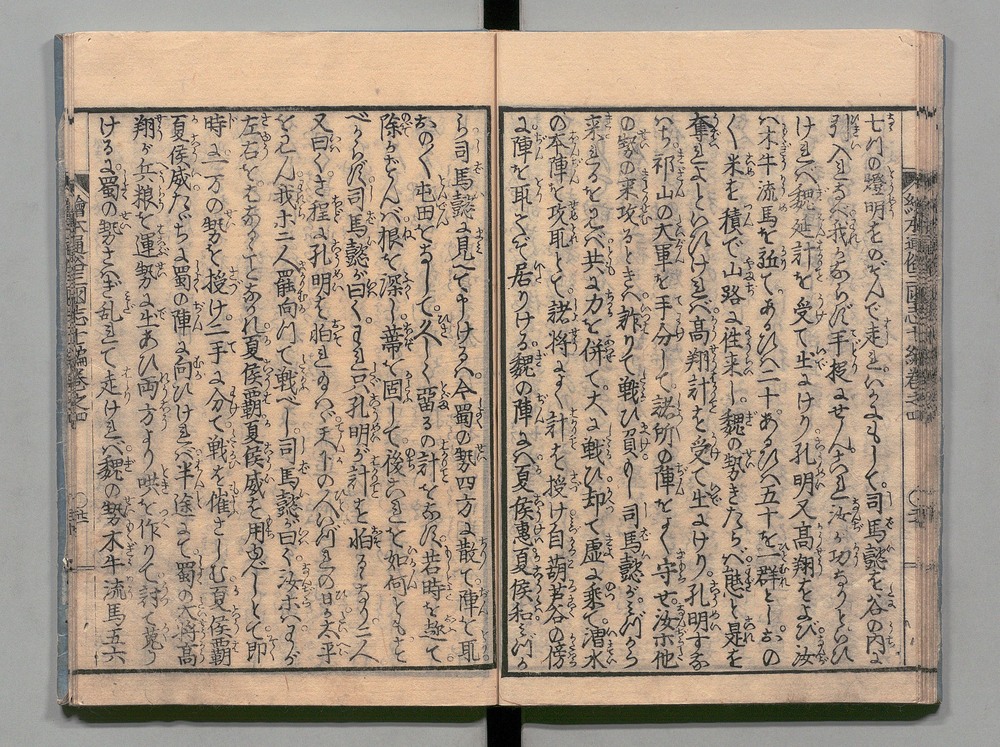 七つの燈明をのぞんで走れいかにもして司馬懿を谷の内に
引入れさへ我かならず手捉にせんこれ汝が功なりといひ
けれバ魏延計を受て出にけり孔明又高翔をよび汝
ハ木牛流馬を或ひハ二十あるひハ五十を一群としおの
く米を積で山路に往来し魏の勢きたらバ態と是を
奪れよといひけれバ高翔計を受て出にけり孔明すな
はち祁山の大軍を手分して諸所の陣をよく守せ汝ホ他
の勢の来攻るときハ詐りて戦ひ負よ司馬懿がみづから
来るをミバ共に力を併て大に戦ひ却て虚に乗て渭水
の本陣を攻取と諸将によく計を授け自葫芦谷の傍
に陣を取てぞ居りける魏の陣にハ夏侯惠夏侯和ミづか
ら司馬懿に見へて申けるハ今蜀の勢四方に散て陣を取
おのく屯田をなして久しく留るの計をなす若時を逐て
除かざんバ根を深し蔕を固して後これを如何ともすべ
べからず司馬懿が曰くこれ只孔明が計を怕るなり二人
又曰くさ程に孔明を怕れ玉ハゞ天下の人ハ何れの日か太平
をミん我ホ二人罷向つて戦べし司馬懿が曰く汝ホハまづ
左右をはなるゝことなかれ夏侯覇夏侯威を用ゆべしとて即
時に一万の勢を授け二手に分て戦を催さしむ夏侯覇
夏侯威たゞちに蜀の陣に向ひけれバ半途にて蜀の大将高
翔が兵粮を運勢に出あひ両方より哄を作りて討て蒐り
けるに蜀の勢さハぎ乱れて走けれバ魏の勢木牛流馬五六
繪本通俗三國志七編巻之四